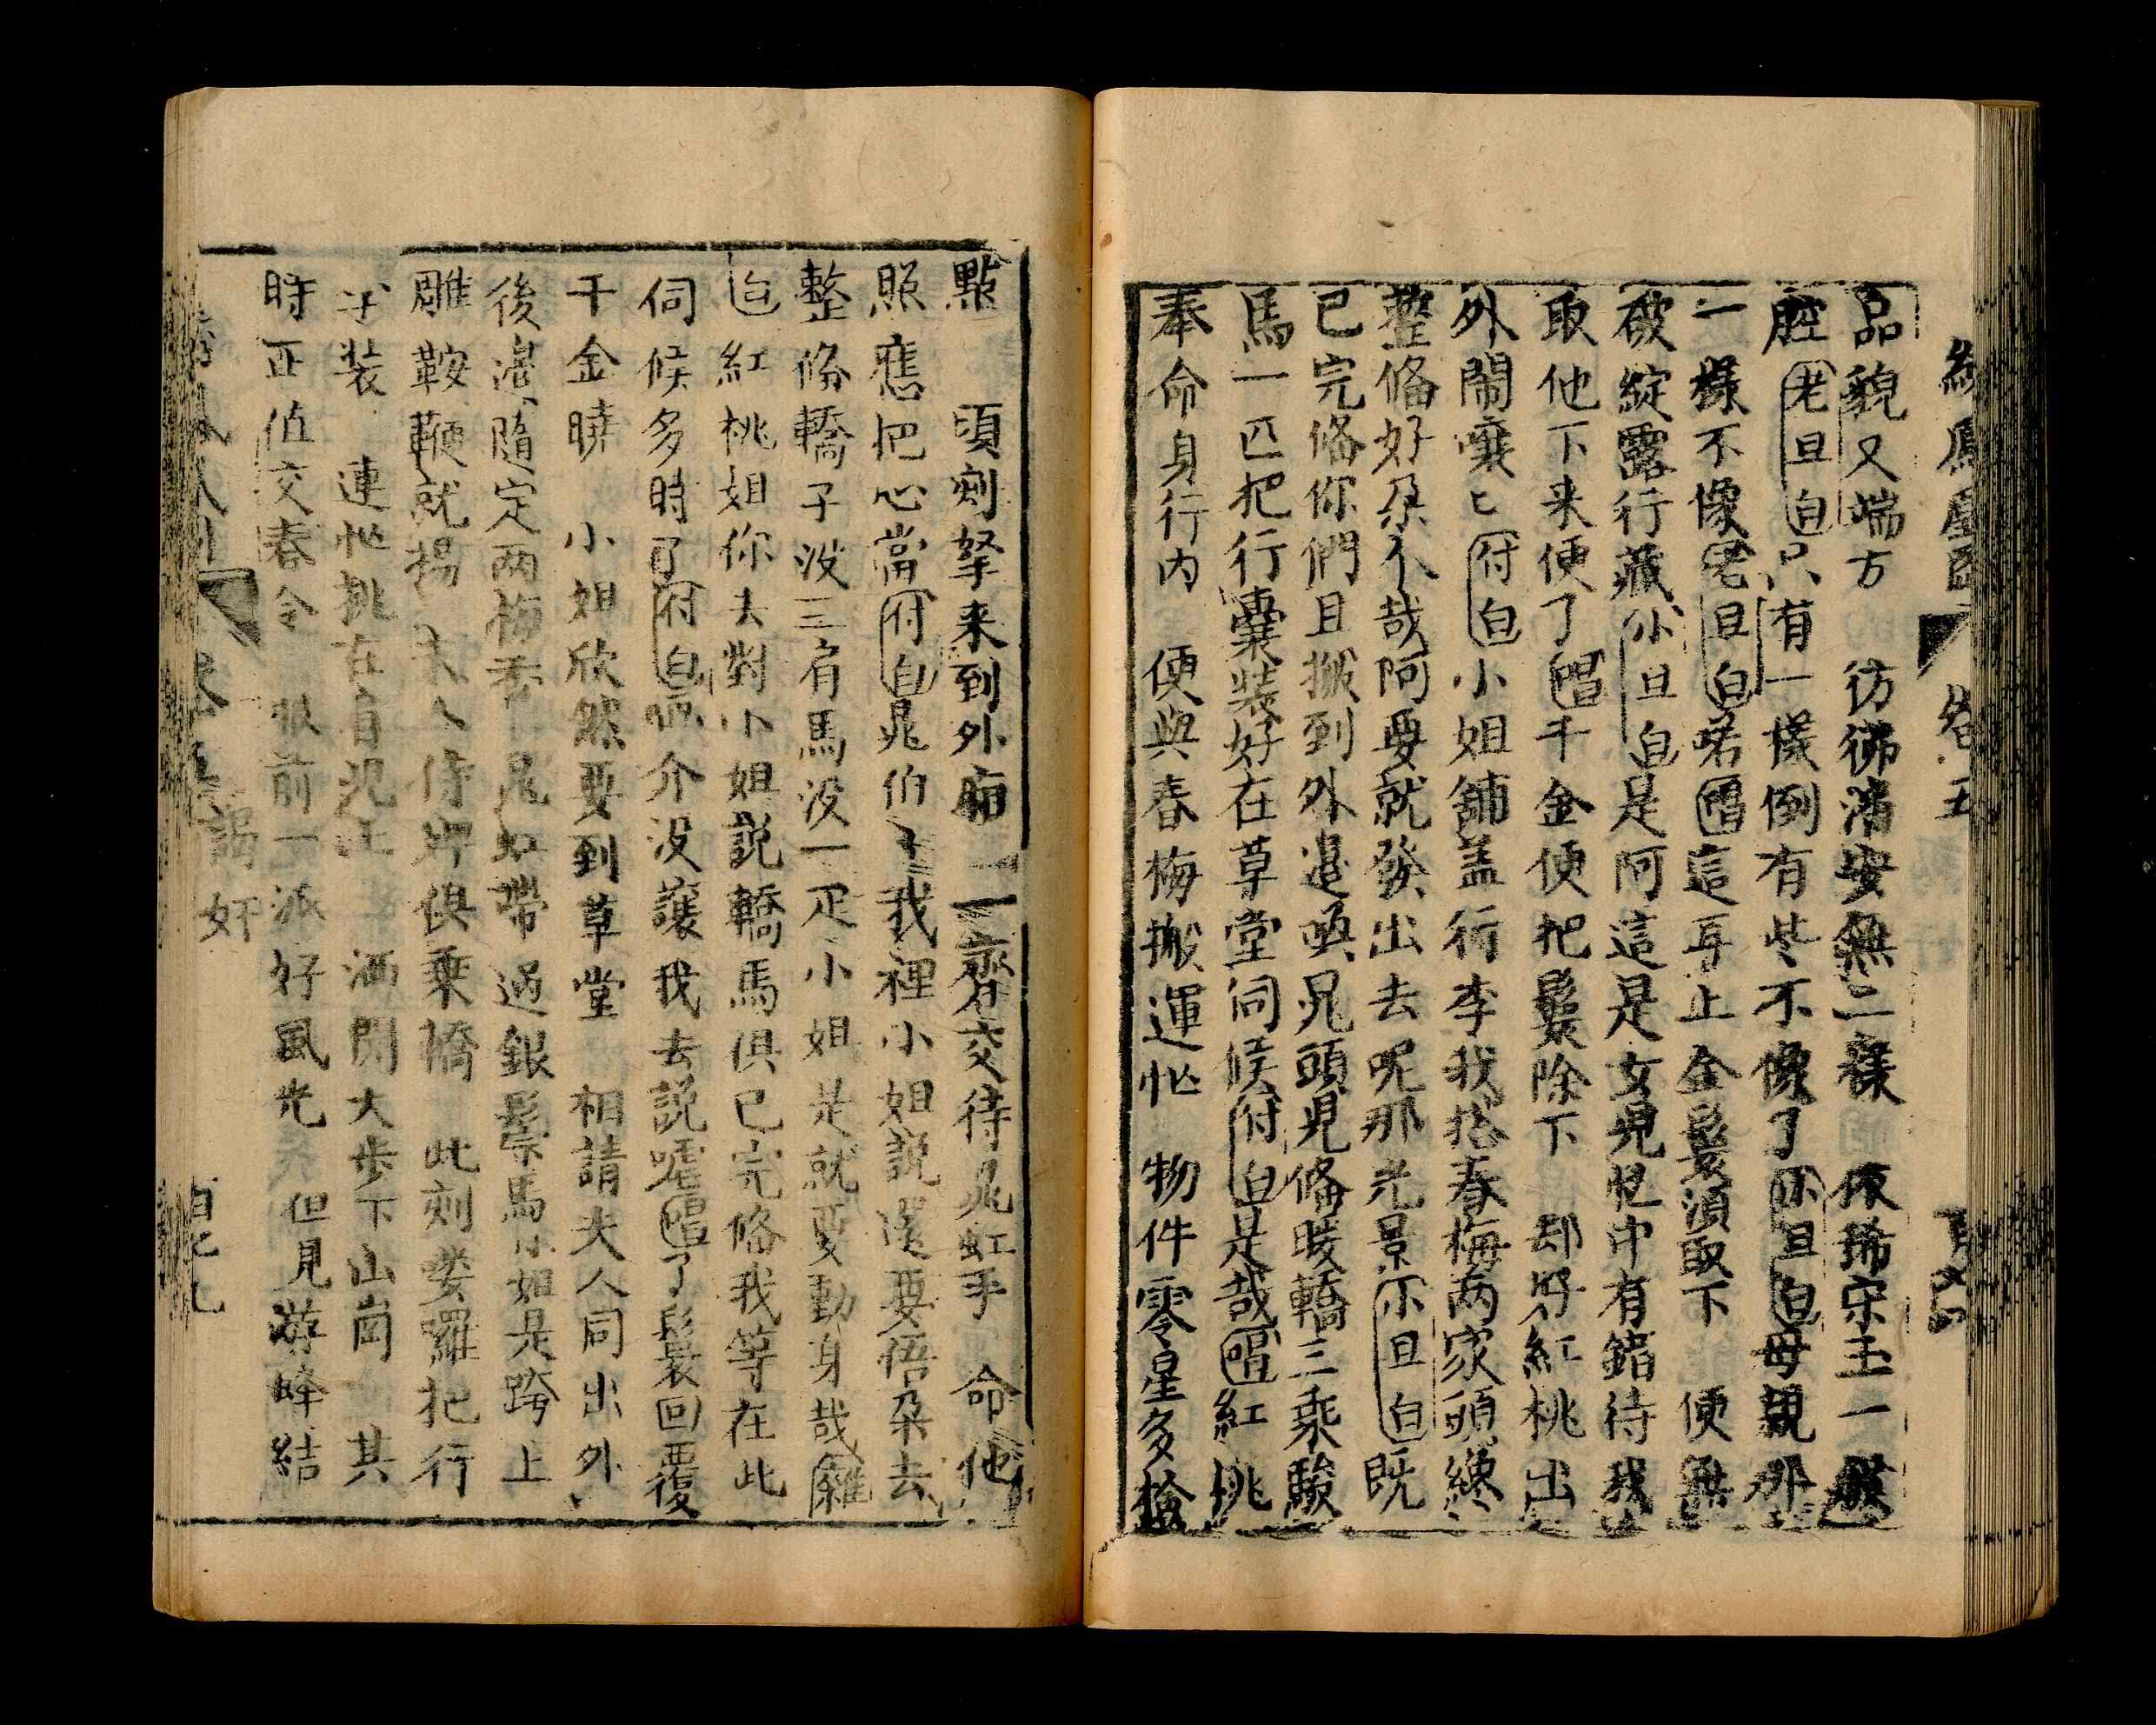 品貌又端方　彷彿潘安無二樣　依稀宋玉一般
腔老旦白只有一樣倒有些不像了小旦白母親那
一樣不像老旦白喏唱這耳上金鬟須取下　便無
破綻露行藏小旦白是阿這是女兒性中有錯待我
取他下来便了唱千金便把鬟除下　却好紅桃出
外鬧嚷匕付白小姐舖盖行李我搭春梅两家頭纔
整俻好朶个哉阿要就發出去呢那光景小旦白既
已完俻你們且搬到外邉喚晁頭兒俻暖轎三乘駿
馬一匹把行囊裝好在草堂伺候付白是哉唱紅桃
奉命身行内　便與春梅搬運忙　物件零星多檢
點　頃刻拏来到外廂　一齊交待晁虹手　命他
照應把心當付白晁伯了我裡小姐說還要俉朶去
整俻轎子没三肩馬没一疋小姐是就要動身哉雜
白紅桃姐你去對小姐説轎馬俱已完俻我等在此
伺候多時了付白介没讓我去説嘘唱了鬟回覆
千金曉　小姐欣然要到草堂　相請夫人同出外
後邉隨定两梅香　過銀鬃馬小姐是跨上
雕鞍鞭就揚　夫人侍婢俱乘轎　此刻嘍囉把行
裝　連忙挑在肩　洒開大步下山崗　其
時正值交春令　眼前一派好風光　但見游蜂結
卷五